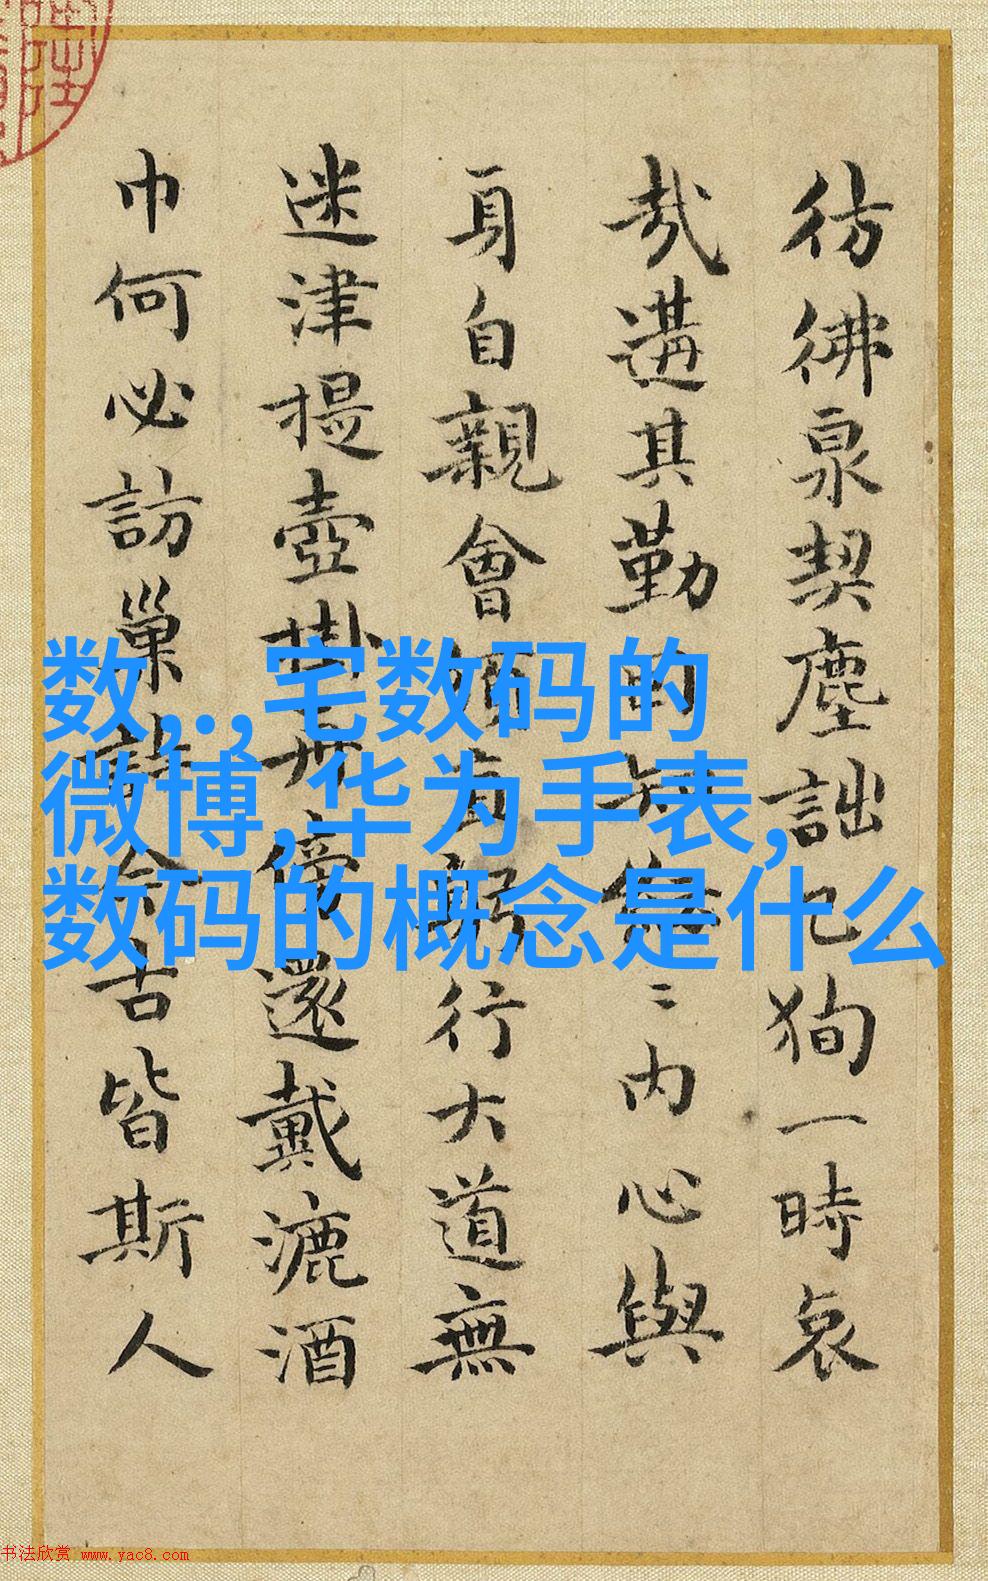 彷彿泉契塵詘已狥一時哀
哉遘其勤自
内心與
身自親會
行大道無
迷津提壺掛
傍還戴漉酒
巾何必訪巢
今古皆斯人
数,..,宅数码的
微博,华为手表,
数码的概念是什么
书法欣赏 www.yac8.com